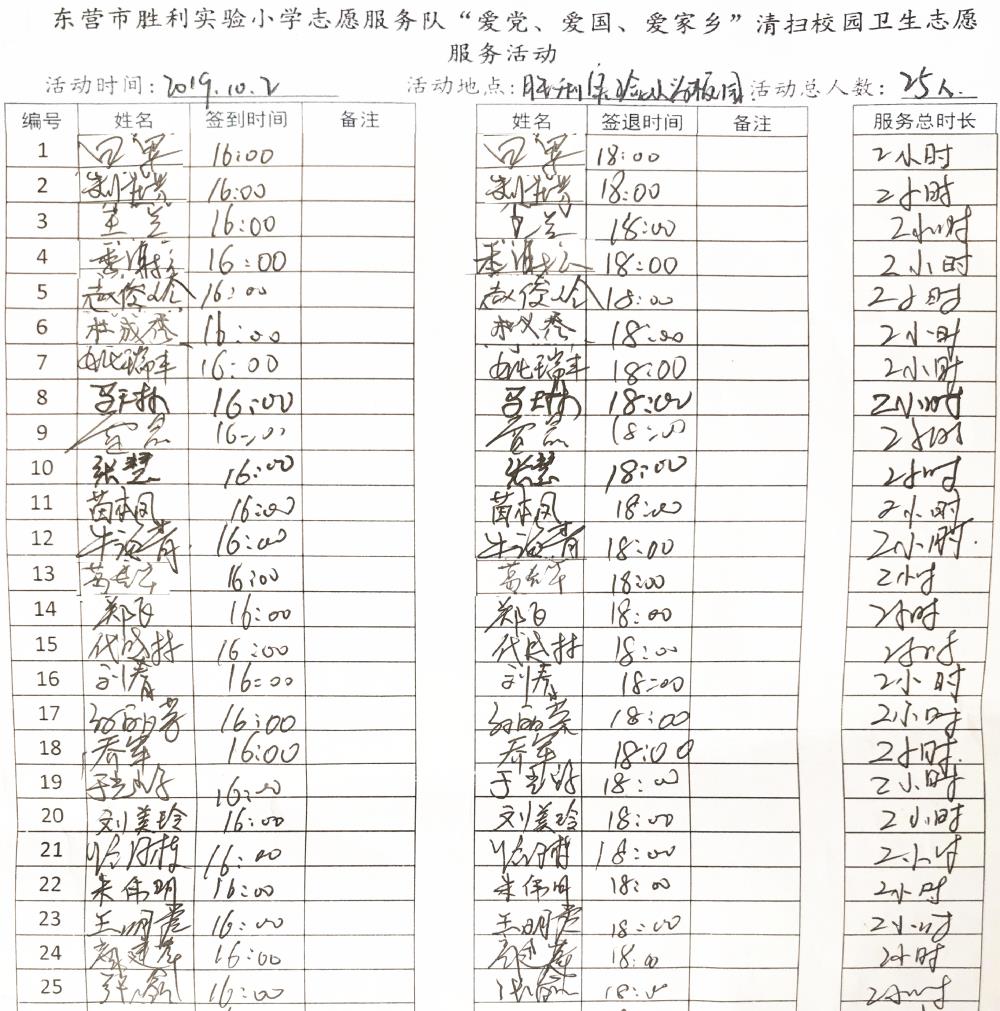 东营市胜利实验小学志愿服务队“爱党、爱国、爱家乡”清扫校园卫生志愿
服务活动
活动时间：2019.10.2 活动地点：胜利实验小学校园 活动总人数：25人
编号 姓名 签到时间 备注 姓名 签退时间 备注 服务总时长
1 16:00 18:00 2小时
2 16:00 18:00 2小时
3 王兰 16:00 王兰 18:00 2小时
4 16:00 18:00 2小时
5 赵俊 16:00 赵俊 18:00 2小时
6 杜成秀 16:00 杜成秀 18:00 2小时
7 姚瑞丰 16:00 姚瑞丰 18:00 2小时
8 16:00 18:00 2小时
9 16:00 18:00 2小时
10 张慧 16:00 张慧 18:00 2小时
11 苗本凤 16:00 苗本凤 18:00 2小时
12 牛海青 16:00 牛海青 18:00 2小时.
13 16:00 18:00 2小时
14 郑 16:00 郑 18:00 2小时
15 代 16:00 代 18:00 2小时
16 刘春 16:00 刘春 18:00 2小时
17 16:00 18:00 2小时
18 乔军 16:00 乔军 18:00 2小时.
19 于 16:00 于 18:00 2小时
20 刘美玲 16:00 刘美玲 18:00 2小时
21 16:00 18:00 2小时
22 朱伟明 16:00 朱伟明 18:00 2小时
23 王明 16:00 王明 18:00 2小时
24 16:00 18:00 2小时
25 16:00 18:00 2小时